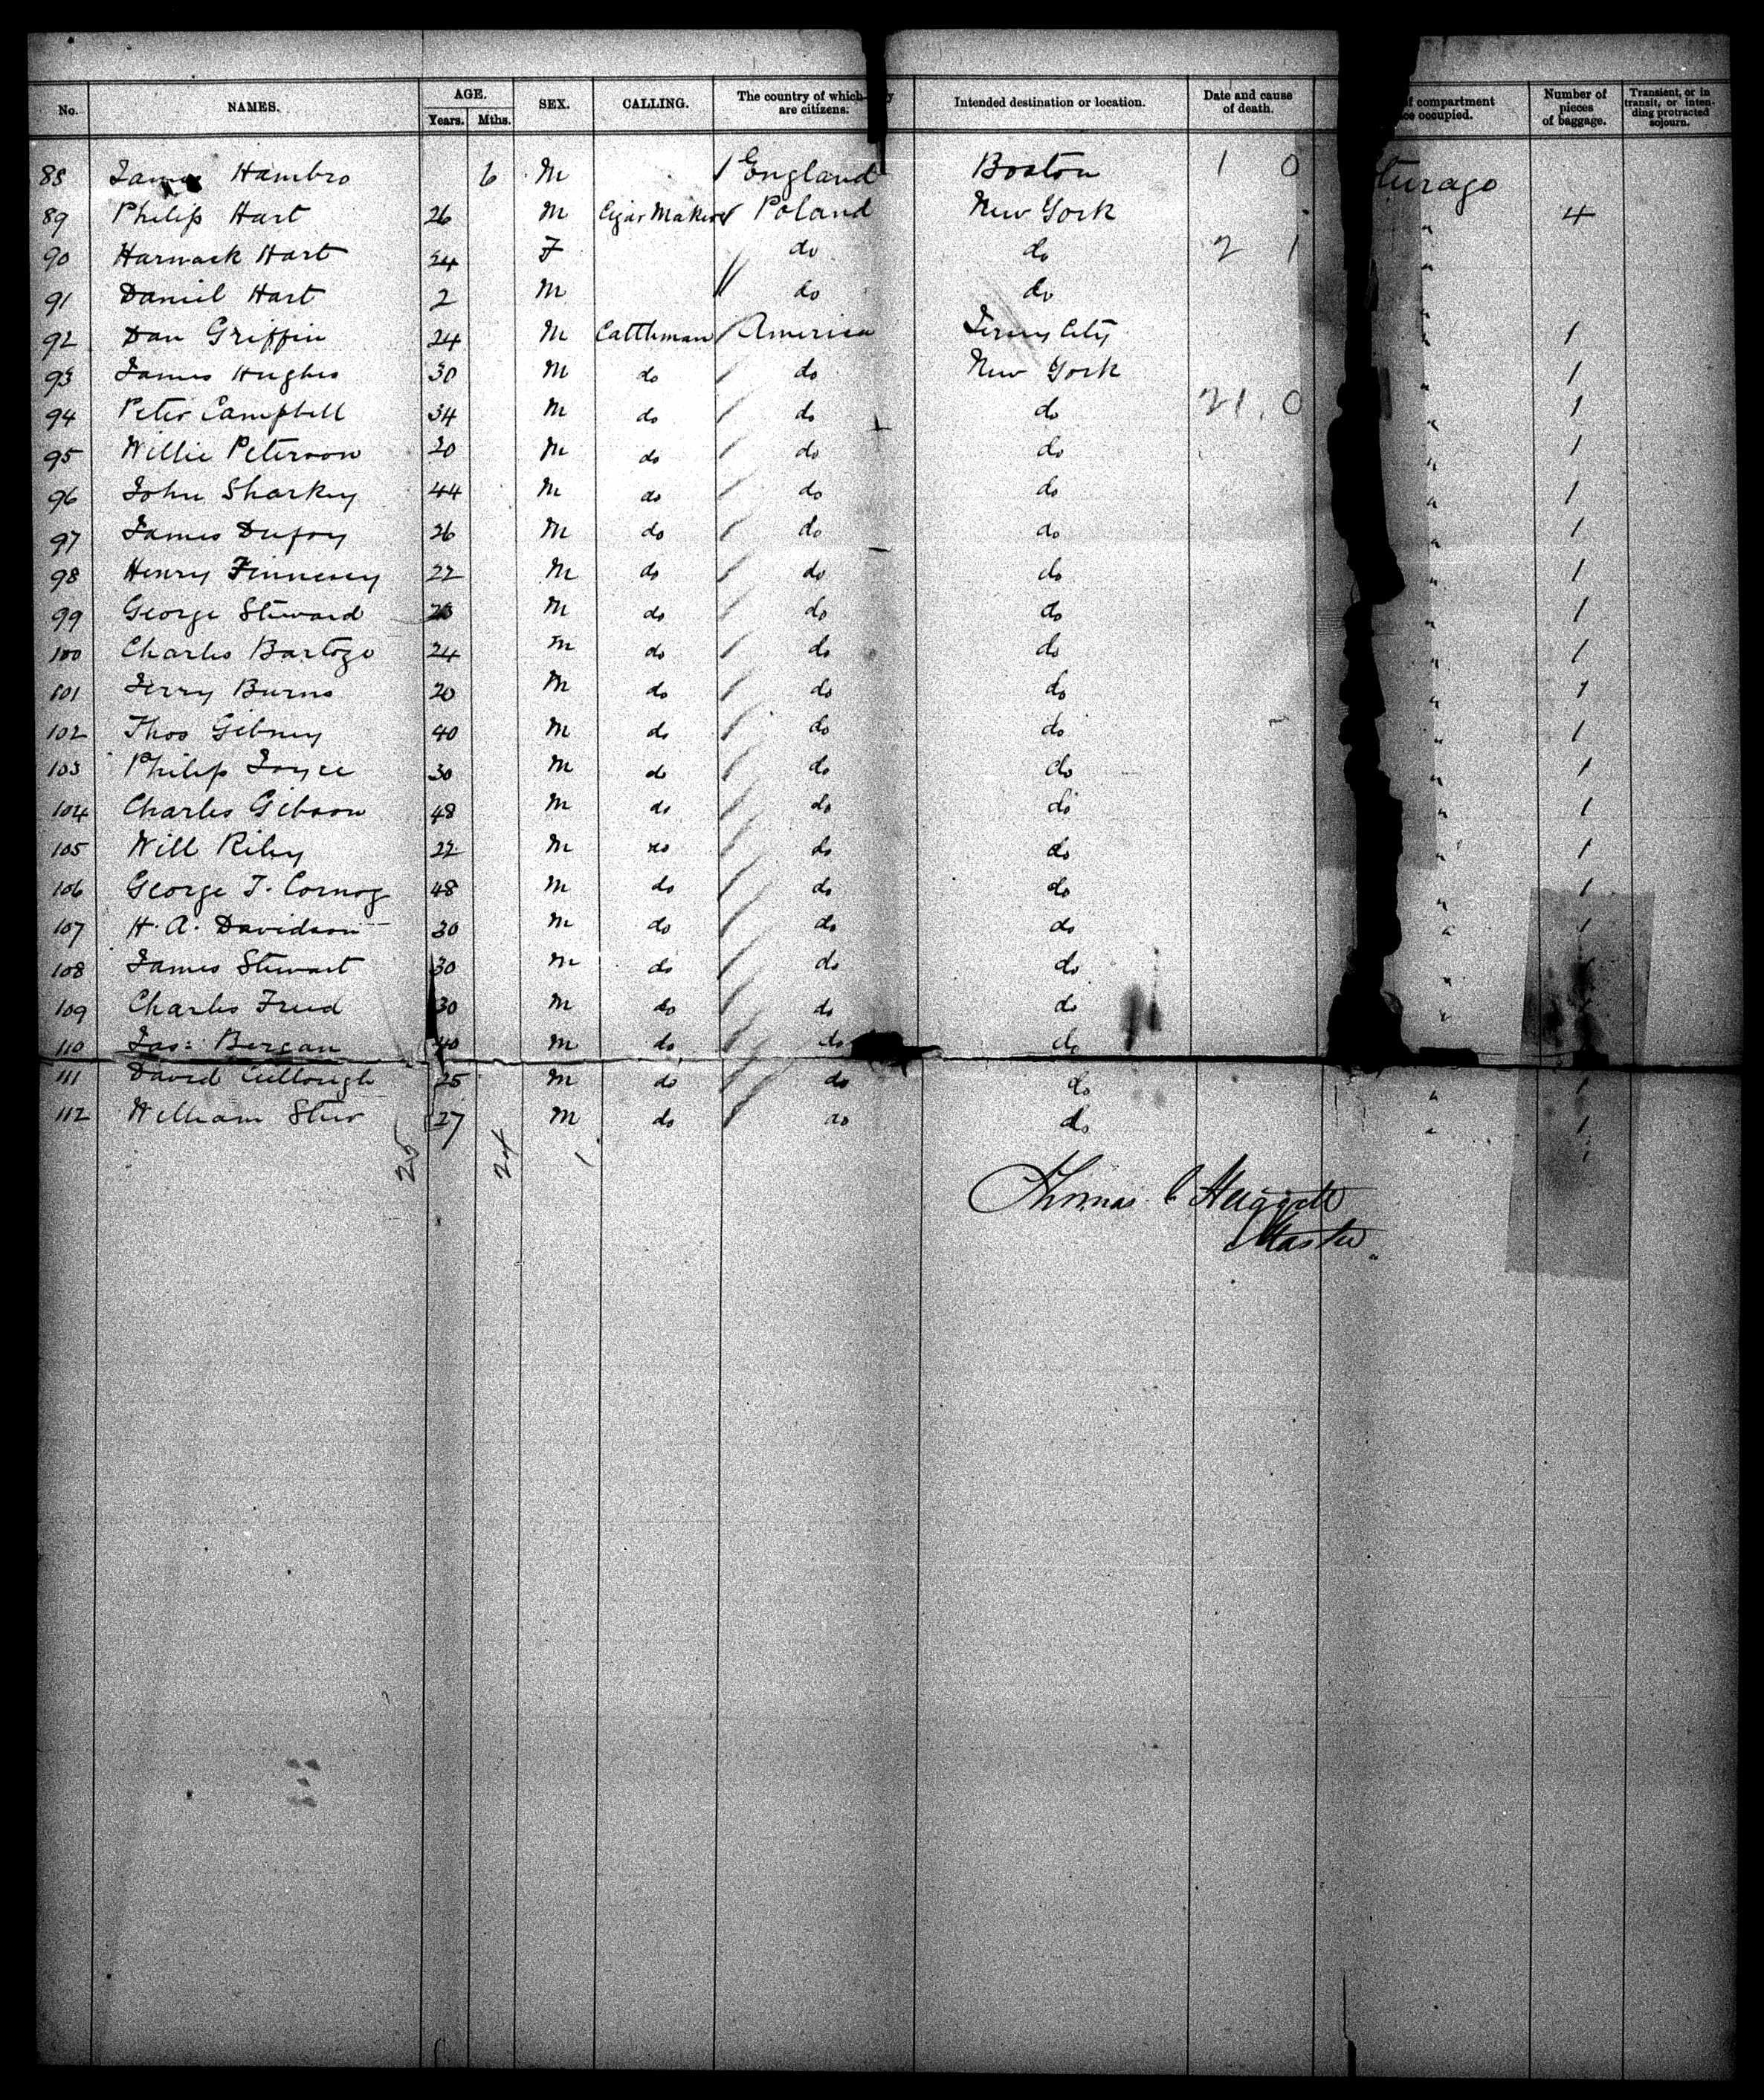 No. NAMES. AGE. Years. Mths. SEX. CALLING. The country of which are citizens. Intended destination or location. Date and cause of death. of compartment occupied. Number of pieces of baggage. Transient, or in transit, or intending protracted sojourn.
88 James Hambro 6 M England Boston 1 0
89 Philip Hart 26 M Cigar Maker Poland New York " 4
90 Harnack Hart 24 F do do 2 1 "
91 Daniel Hart 2 M do do "
92 Dan Griffin 24 M Cattleman America Jersey City " 1
93 James Hughes 30 M do do New York " 1
94 Peter Campbell 34 M do do do 21 0 " 1
95 Willie Peterson 20 M do do do " 1
96 John Sharkey 44 M do do do " 1
97 James Dufoy 26 M do do do " 1
98 Henry Finnesey 22 M do do do " 1
99 George Steward M do do do " 1
100 Charles Bartoge 24 M do do do " 1
101 Jerry Burns 20 M do do do " 1
102 Thos Gibney 40 M do do do " 1
103 Philip Joyce 30 M do do do " 1
104 Charles Gibson 48 M do do do " 1
105 Will Riley 22 M do do do " 1
106 George T. Cornog 48 M do do do " 1
107 H. A. Davidson 30 M do do do " 1
108 James Stewart 30 M do do do "
109 Charles Freed 30 M do do do "
110 Jas: Bergan 40 M do do do
111 David Cullough 25 M do do do " 1
112 William Stew 27 M do do do " 1
25 24 1
Thomas C Huggett
Master.